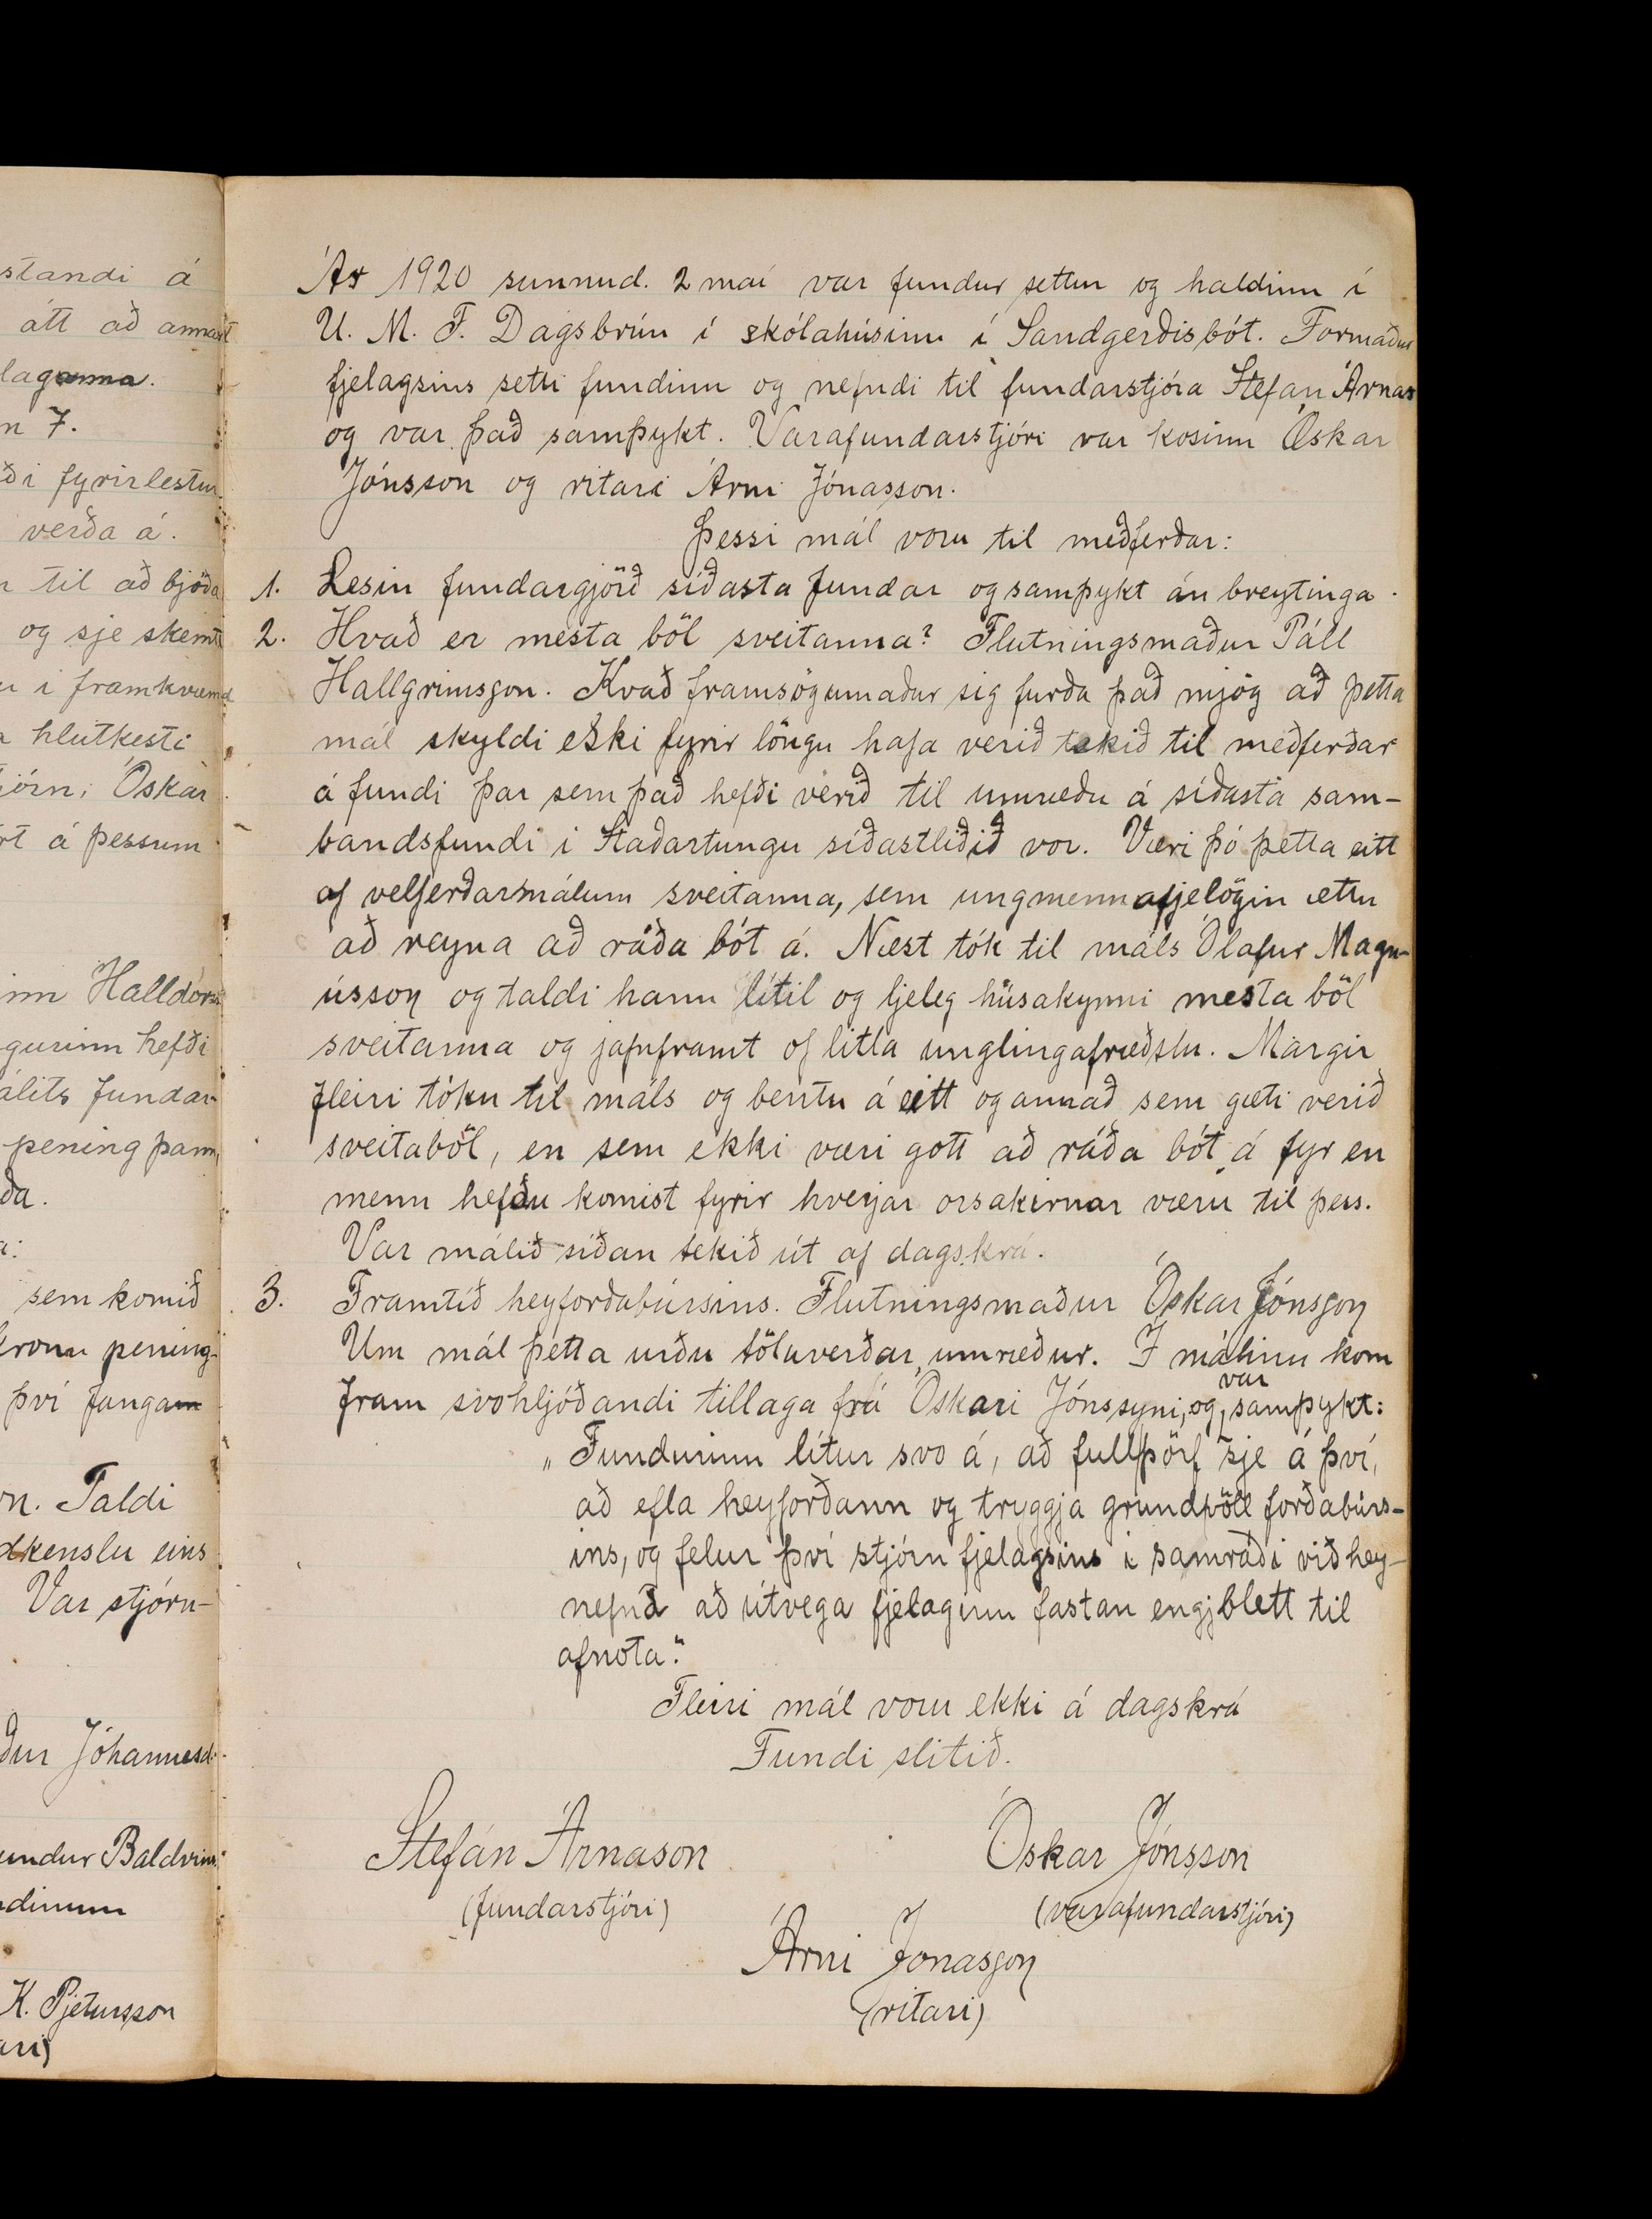 standi á
átt að annast
laganna.
n 7.
ði fyrirlestur
verða á.
til að bjóða
og sje skemt
u í framkvæmd
hlutkesti
tjórn; Óskar
rt á þessum
inn Halldórs
gurinn hefði
álits fundar-
pening þann
ða.
a:
sem komið
krónu pening-
því fangam
on. Taldi
dkenslu eins
Var stjórn-
ður Jóhannesd.
undur Baldvins
dinum
K. Pjetursson
ari)
Ár 1920 sunnud. 2 maí var fundur settur og haldinn í
U. M. F. Dagsbrún í skólahúsinu í Sandgerðisbót. Formaður
fjelagsins setti fundinn og nefndi til fundarstjóra Stefán Árnas
og var það samþykt. Varafundarstjóri var kosinn Óskar
Jónsson og ritari Árni Jónasson.
Þessi mál voru til meðferðar:
1. Lesin fundargjörð síðasta fundar og samþykt án breytinga.
2. Hvað er mesta böl sveitanna? Flutningsmaður Páll
Hallgrimsson. Kvað framsögumaður sig furða það mjög að þetta
mál skyldi ekki fyrir löngu hafa verið tekið til meðferðar
á fundi þar sem það hefði verið til umræðu á síðasta sam-
bandsfundi í Staðartungu síðastliðið vor. Væri þó þetta eitt
af velferðarmálum sveitanna, sem ungmennafjelögin ættu
að reyna að ráða bót á. Næst tók til máls Ólafur Magn-
ússon og taldi hann lítil og ljeleg húsakynni mesta böl
sveitanna og jafnframt of litla unglingafræðslu. Margir
fleiri tóku til máls og bentu á eitt og annað sem gæti verið
sveitaböl, en sem ekki væri gott að ráða bót á fyr en
menn hefðu komist fyrir hverjar orsakirnar væru til þess.
Var málið síðan tekið út af dagskrá.
3. Framtíð heyforðabúrsins. Flutningsmaður Óskar Jónsson
Um mál þetta urðu töluverðar umræður. Í málinu kom
fram svohljóðandi tillaga frá Óskari Jónssyni, og var samþykt:
„Fundurinn lítur svo á, að fullþörf sje á því,
að efla heyforðann og tryggja grundvöll forðabúrs-
ins, og felur því stjórn fjelagsins í samráði við hey-
nefnd að útvega fjelaginu fastan engjblett til
afnota."
Fleiri mál voru ekki á dagskrá
Fundi slitið.
Stefán Árnason Óskar Jónsson
(fundarstjóri) (varafundarstjóri)
Árni Jónasson
(ritari)